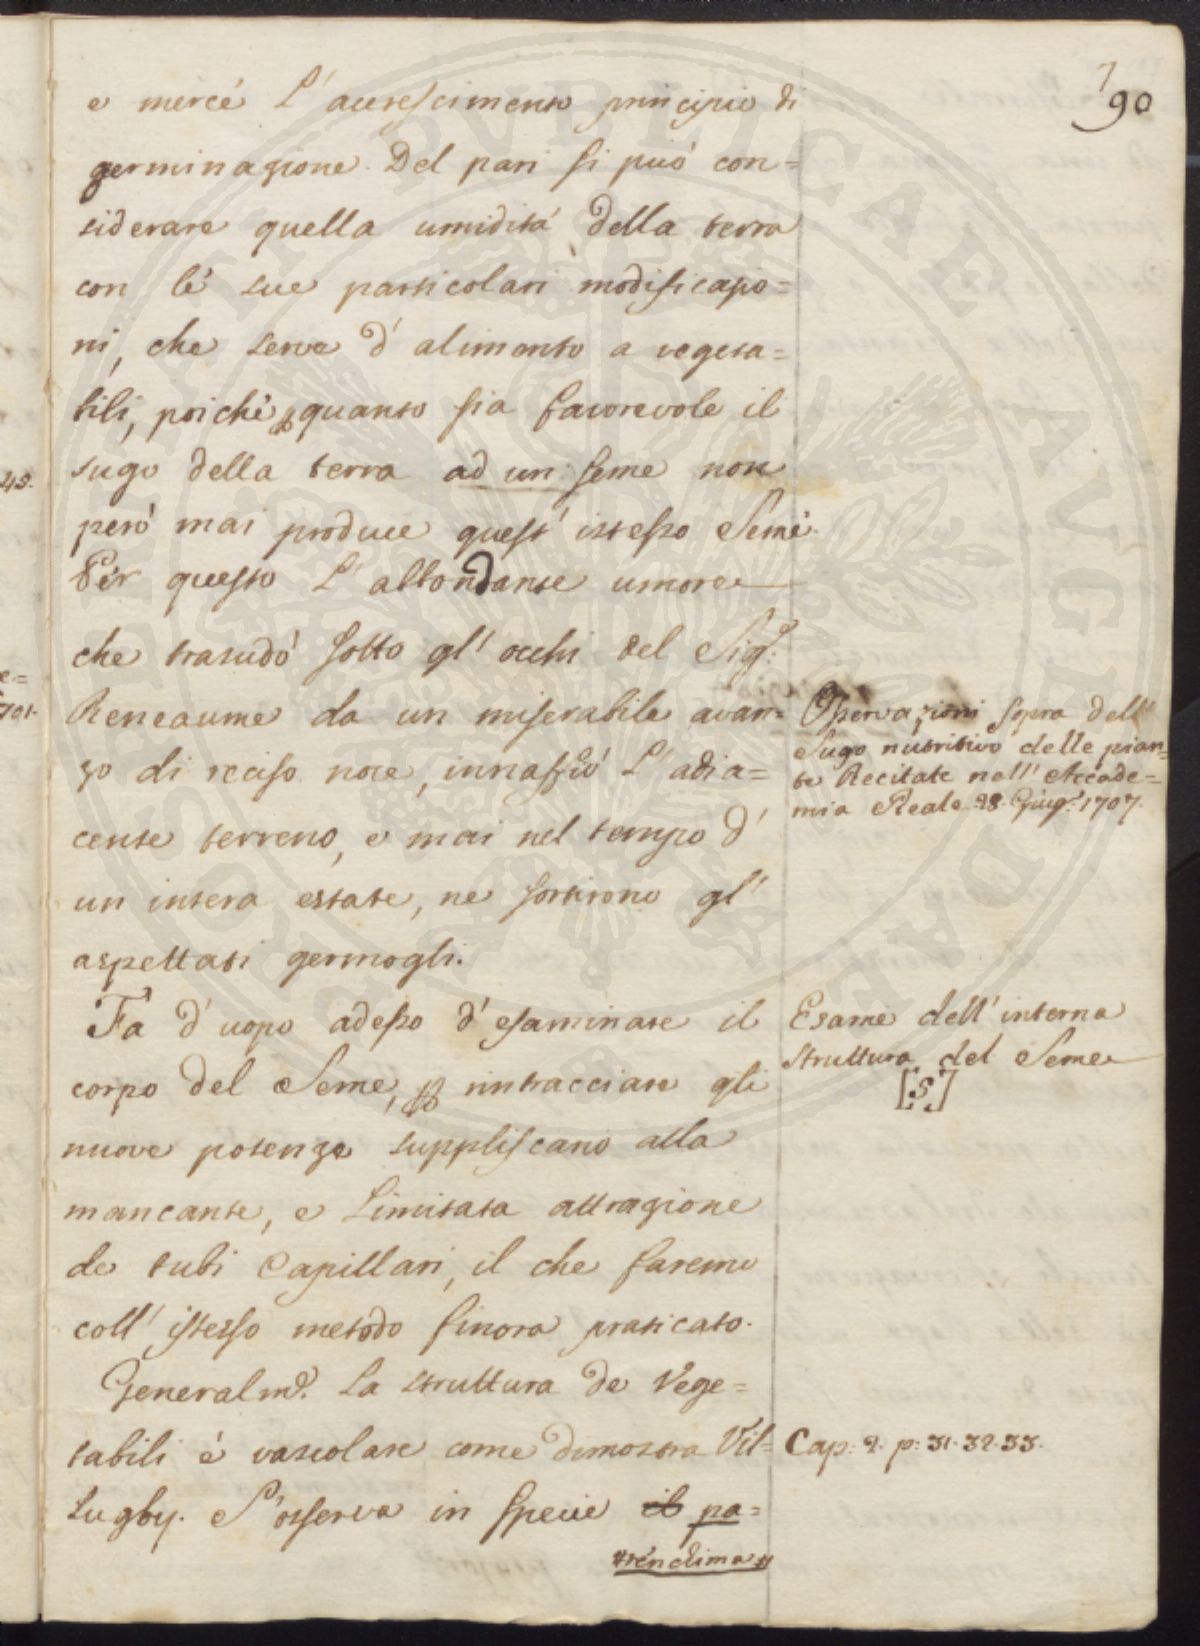 90
e mercé l'accrescimento principio di
germinazione. Del pari si può con=
siderare quella umidità della terra
con le sue particolari modificazio=
ni, che serve d'alimento a vegeta=
bili, poiché quanto sia favorevole il
sugo della terra ad un seme non
peró mai produce quest'istesso Seme.
Per questo l'abbondante umore
che trasudó sotto gl'occhi del Sig.r
Reneaume da un miserabile avan=
zo di reciso noce, innaffió l'adia=
cente terreno, e mai nel tempo d'
un intera estate, ne sortirono gl'
aspettati germogli.
Fa d'uopo adesso d'esaminare il
corpo del Seme, rintracciare gli
nuove potenze suppliscano alla
mancante, e limitata attrazione
de tubi Capillari, il che faremo
coll'istesso metodo finora praticato.
Generalm.e la struttura de Vege=
tabili é vascolare come dimostra Vil=
lugby. S'osserva in specie il pa=
renchima
45.
701.
Osservazioni sopra dell'
Sugo nutritivo delle pian=
te Recitate nell'Accade=
mia Reale 28. Giug.o 1707.
Esame dell'interna
struttura del Seme
[S]
Cap: 2. p: 31. 32. 33.